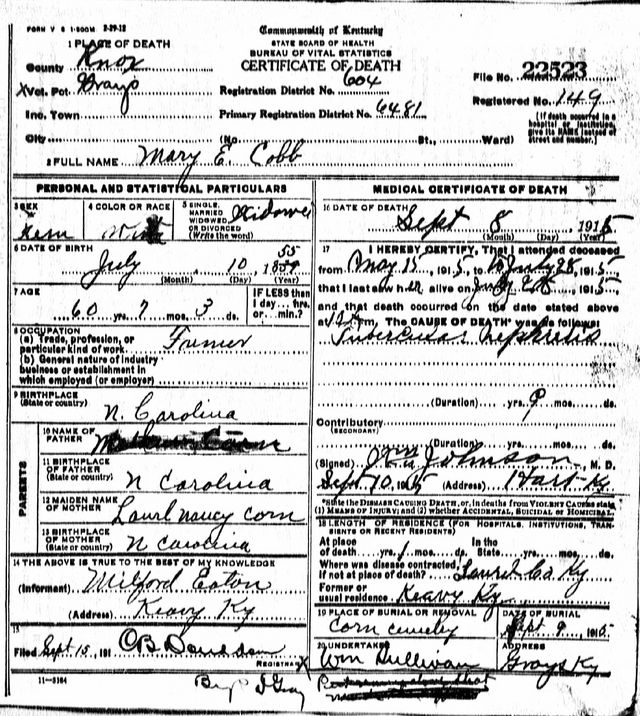 FORM V S 1-500M 2-29-12
Commonwealth of Kentucky
STATE BOARD OF HEALTH
BUREAU OF VITAL STATISTICS
CERTIFICATE OF DEATH
1 PLACE OF DEATH
County Knox
Vot. Pct Grays
Inc. Town
City
Registration District No. 604
Primary Registration District No. 6481
(No. St., Ward)
File No. 22523
Registered No. 149
[If death occurred in a
hospital or institution,
give its NAME instead of
street and number.]
2 FULL NAME Mary E. Cobb
PERSONAL AND STATISTICAL PARTICULARS
3 SEX Fem
4 COLOR OR RACE
5 SINGLE, MARRIED WIDOWED, OR DIVORCED (Write the word)
6 DATE OF BIRTH July 10 55
(Month) (Day) (Year)
7 AGE 60 yrs. 7 mos. 3 ds.
IF LESS than
1 day hrs.
or min.?
8 OCCUPATION
(a) Trade, profession, or
particular kind of work
(b) General nature of industry
business or establishment in
which employed (or employer)
9 BIRTHPLACE
(State or country) N. Carolina
PARENTS
10 NAME OF
FATHER
11 BIRTHPLACE
OF FATHER
(State or country) N Carolina
12 MAIDEN NAME
OF MOTHER Laurl Nancy Corn
13 BIRTHPLACE
OF MOTHER
(State or country) N Carolina
14 THE ABOVE IS TRUE TO THE BEST OF MY KNOWLEDGE
(Informant) Milford Eaton
(Address) Keavy Ky
15
Filed Sept 15, 191
REGISTRAR
11-3184
MEDICAL CERTIFICATE OF DEATH
16 DATE OF DEATH Sept 8, 1915
(Month) (Day) (Year)
17 I HEREBY CERTIFY, That I attended deceased
from May 15, 1915, to July 28, 1915,
that I last saw her alive on July 28, 1915,
and that death occurred on the date stated above
at m. The CAUSE OF DEATH* was as follows:
Tubercular Nephritis
(Duration) yrs. 9 mos. ds.
Contributory
(SECONDARY)
(Duration) yrs. mos. ds.
(Signed) Johnson, M. D.
Sept 10, 1915 (Address) Hart-Ky
*State the DISEASE CAUSING DEATH, or, in deaths from VIOLENT CAUSES state
(1) MEANS OF INJURY; and (2) whether ACCIDENTAL, SUICIDAL or HOMICIDAL.
18 LENGTH OF RESIDENCE (FOR HOSPITALS, INSTITUTIONS, TRANSIENTS OR RECENT RESIDENTS)
At place In the
of death yrs. mos. ds. State yrs. mos. ds.
Where was disease contracted,
if not at place of death? Laurel Co Ky
Former or
usual residence Keavy Ky
19 PLACE OF BURIAL OR REMOVAL
Corn
DATE OF BURIAL
Sept 9, 1915
20 UNDERTAKER
Wm Sullivan
ADDRESS
Grays Ky